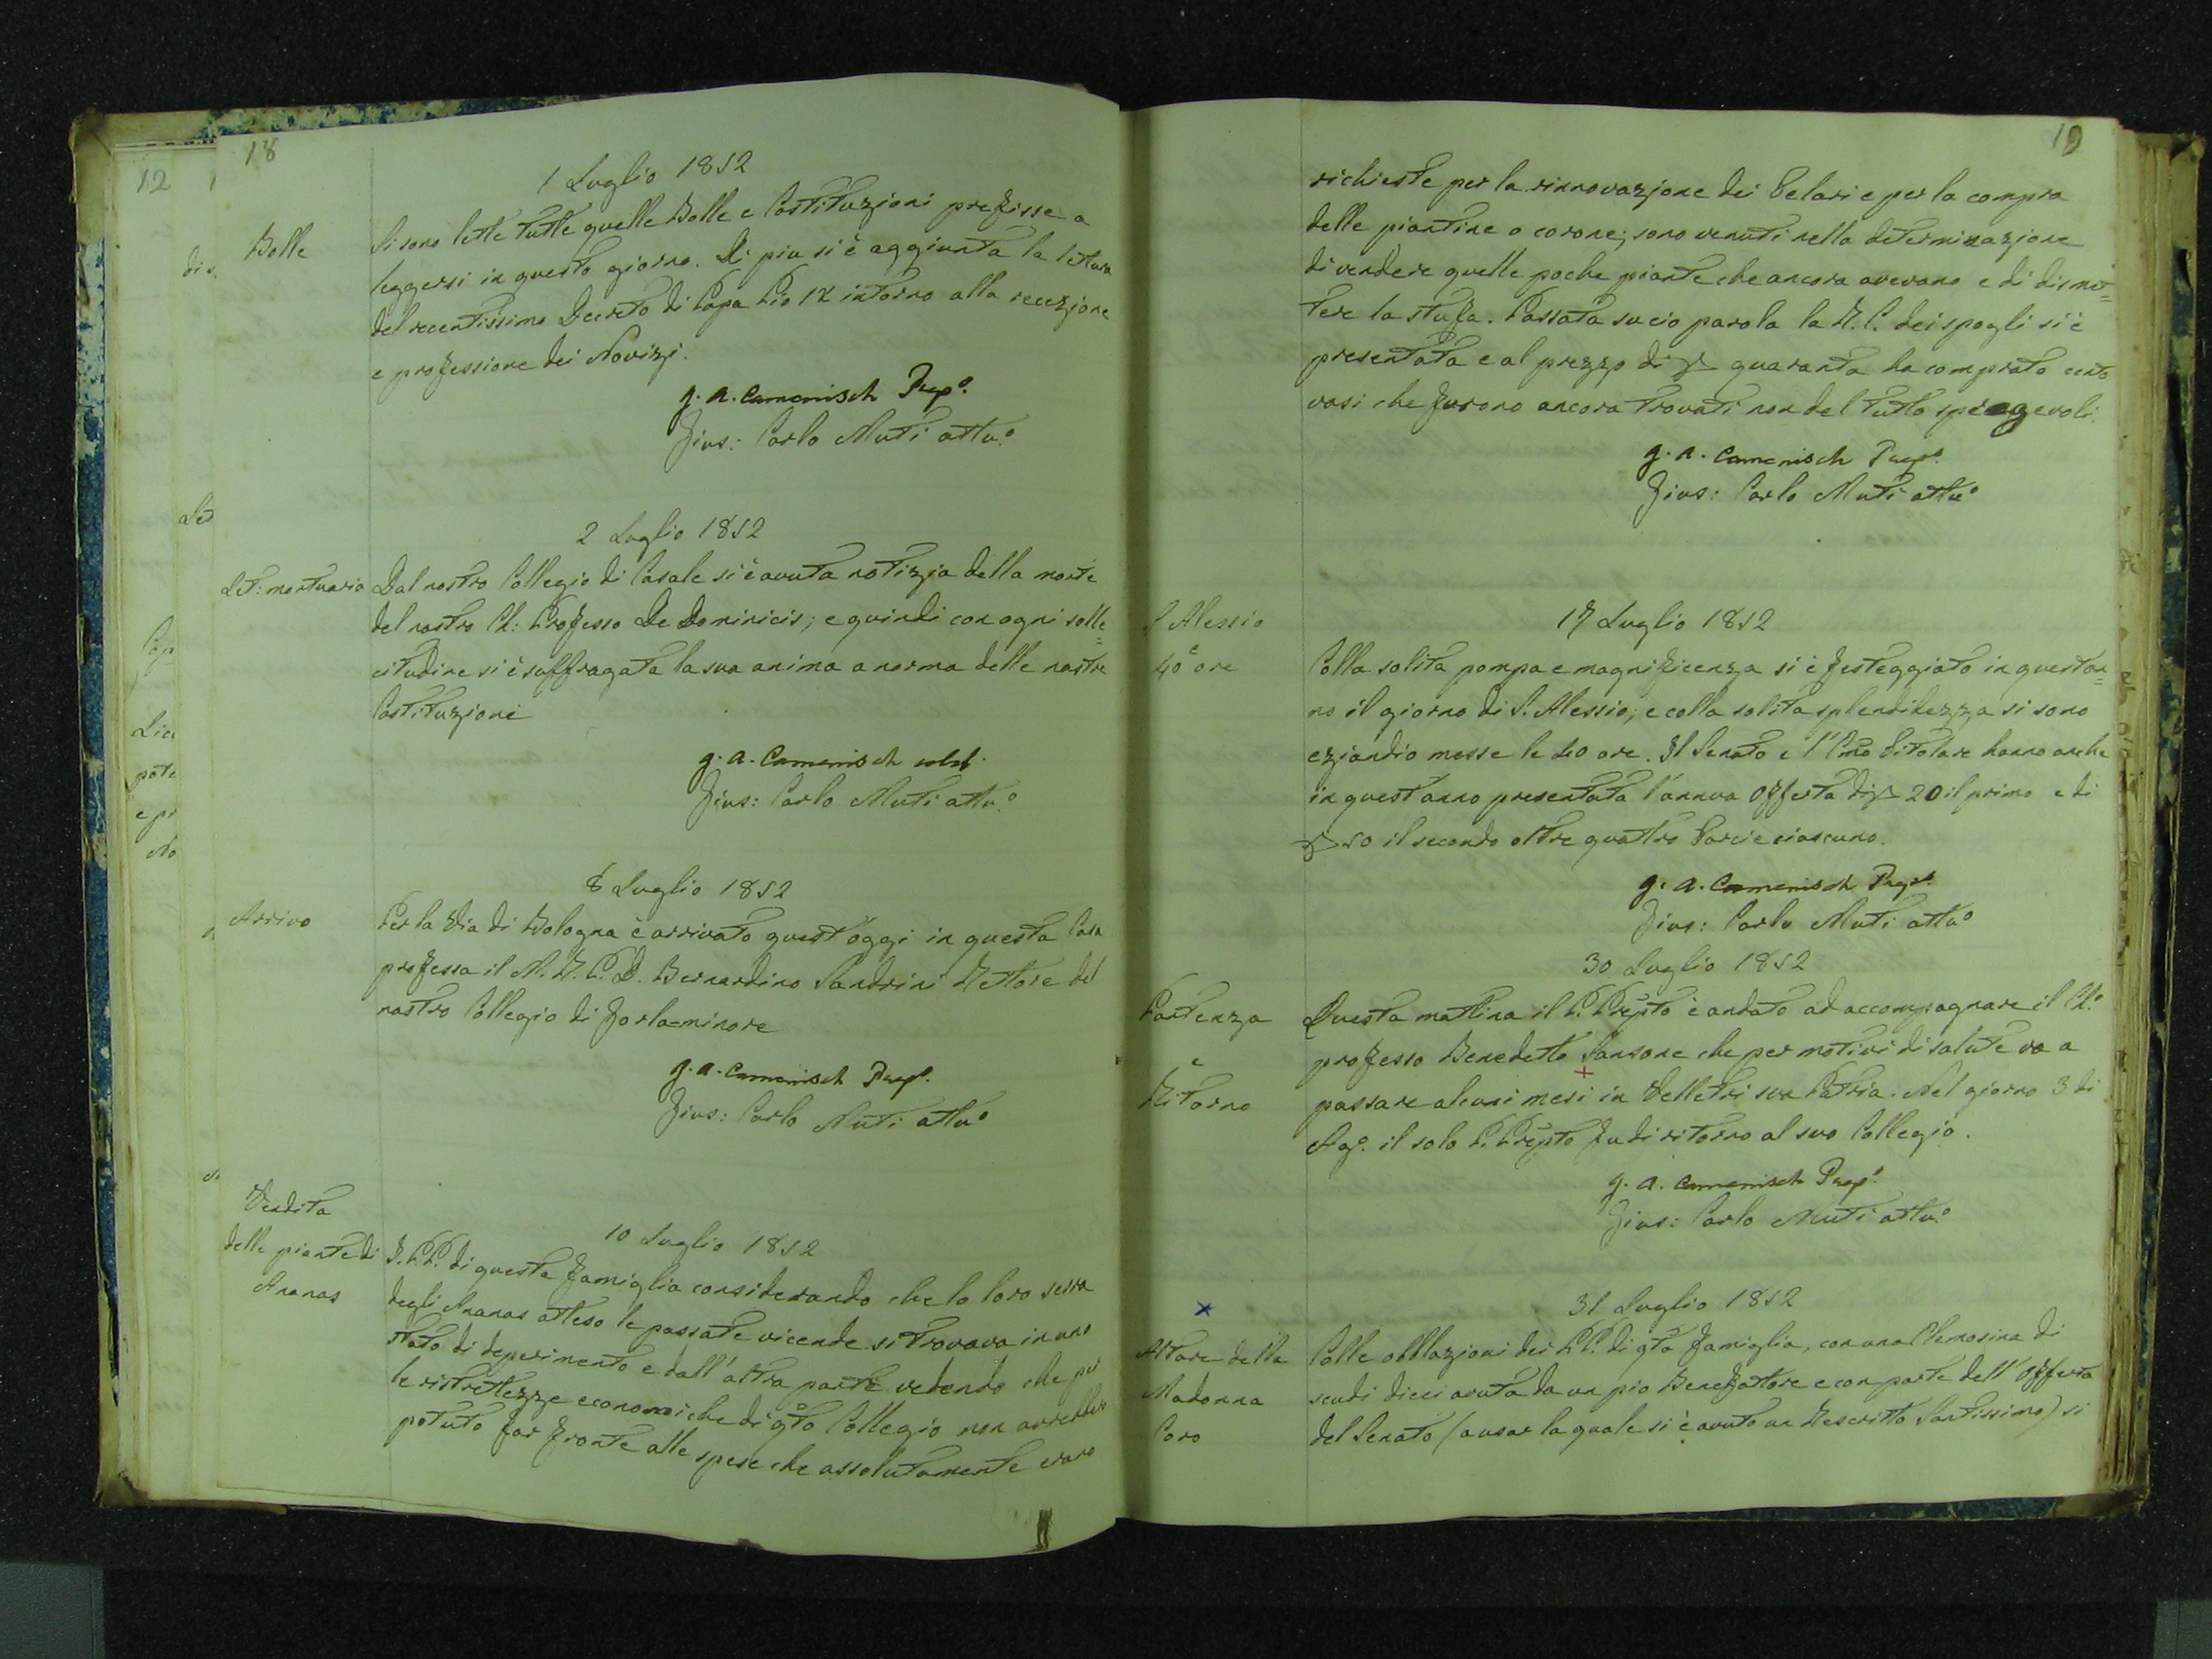 18
1 Luglio 1852
Bolle
Si sono lette tutte quelle Bolle e Costituzioni prefisse a
leggersi in questo giorno. Di piu si è aggiunta la lettura
del recentissimo Decreto di Papa Pio IX intorno alla recezione
e professione dei Novizi.
g. a. Camenisch Prep.o
Gius: Carlo Muti attu.o
2 Luglio 1852
Let: mortuaria
Dal nostro Collegio di Casale si è avuta notizia della morte
del nostro Ch: Professo De Dominicis; e quindi con ogni solle=
citudine si è suffragata la sua anima a norma delle nostre
Costituzioni
g. a. Camenisch
Gius: Carlo Muti attu.o
6 Luglio 1852
Arrivo
Per la via di Bologna è arrivato quest'oggi in questa Casa
professa il M. R. P. D. Bernardino Sandrini Rettore del
nostro Collegio di Gorla=minore
g. a. Camenisch Prep.o
Gius: Carlo Muti attu.o
Vendita
delle piante di
Ananas
10 Luglio 1852
I. P.P. di questa famiglia considerando che lo loro serra
degli Ananas atteso le passate vicende si trovava in uno
stato di deperimento e dall'altra parte vedendo che per
le ristrettezze economiche di qto Collegio non avrebber
potuto far fronte alle spese che assolutamente erano
19
richieste per la rinnovazione dei Telari e per la compra
delle piantine o corone; sono venuti nella determinazione
di vendere quelle poche piante che ancora avevano e di dismet=
tere la stufa. Passata su cio parola la R. C. dei spogli si è
presentata e al prezzo di quaranta ha comprato cento
vasi che furono ancora trovati non del tutto spregevoli.
g. a. Camenisch Prep.o
Gius: Carlo Muti attu.o
17 Luglio 1852
S Alessio
e
40 ore
Colla solita pompa e magnificenza si è festeggiato in questan=
no il giorno di S. Alessio; e colla solita splendidezza si sono
eziandio messe le 40 ore. Il Senato e l'Emo Titolare hanno anche
in quest'anno presentata l'annua offerta di 20 il primo e di
50 il secondo oltre quattro Torcie ciascuno.
g. a. Camenisch Prep.o
Gius: Carlo Muti attu.o
30 Luglio 1852
Partenza
e
Ritorno
Questa mattina il P. Prepto è andato ad accompagnare il Ch.o
professo Benedetto Sansone che per motivi di salute va a
passare alcuni mesi in Velletri sua Patria. Nel giorno 3 di
Ago. il solo P. Prepto fu di ritorno al suo Collegio.
g. a. Camenisch Prep.o
Gius: Carlo Muti attu.o
31 Luglio 1852
Altare della
Madonna
Coro
Colle obblazioni dei PP. di qta famiglia, con una Elemosina di
scudi dieci avuta da un pio Benefattore e con parte dell'offerta
del Senato (a usar la quale si è avuto un Rescritto Santissimo) si